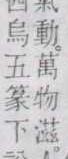 氣動。萬物滋。人
烏五篆下